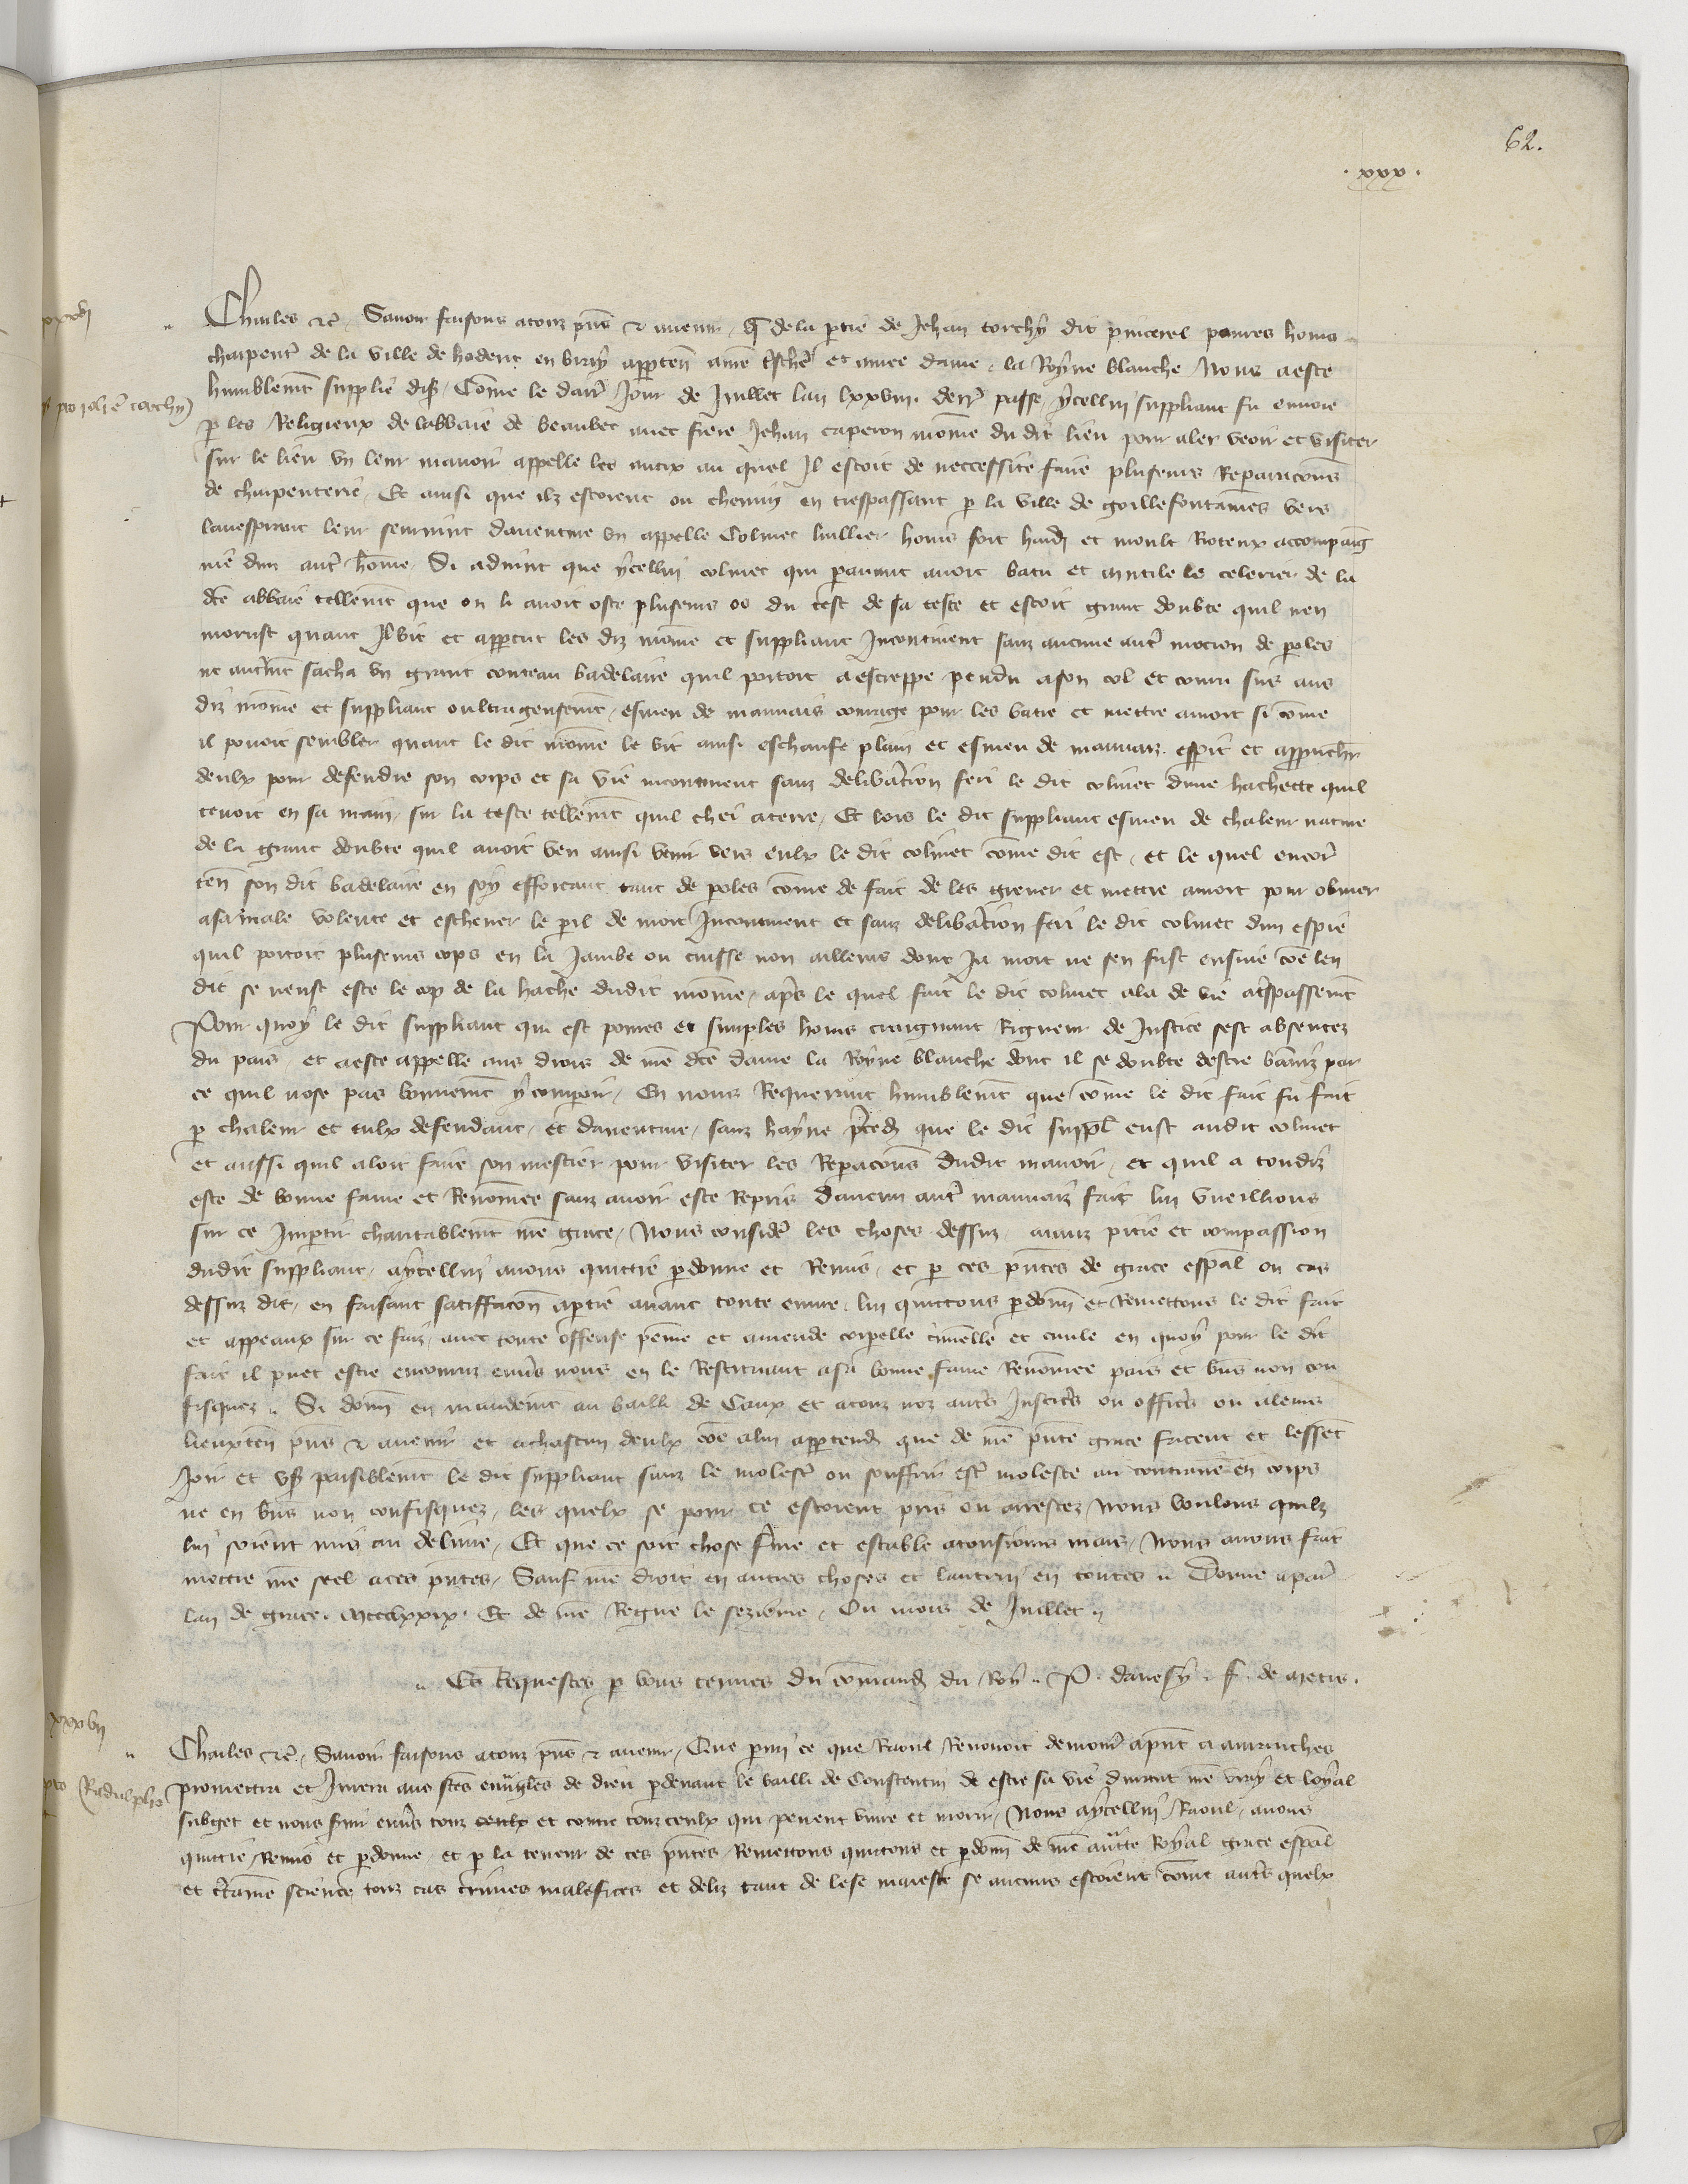 62.
. xxx .
xxxvj
Charles etc̃. Savoir faisons a touz p̃ns et avenir, q̃ de la partie de Jehan torchy dit pincerel povres homs
charpent̃ de la ville de hodenc en bray apparten̄ a nr̃e tresche et amee dame, la Royne blanche Nous a este
humblem̃t supplie dis̃, Com̃e le darr̃ Jour de Juillet lan lxxviii derr̃ passe, ycellui suppliant fu envoie
p les Religieux de labbaie de beaubec avec frere Jehan caperon moin̄e du dit lieu pour aler veoir et visiter
sur le lieu un leur manoir appelle les autix au quel Il estoit de neccessite faire pluseurs Reparac̃ons
de charpenterie, Et ainsi que ilz estoient ou chemin en trespassant p la ville de goillefontaines vers
lavesprant leur seurvint daventure un appelle Colinet huillier homs fort hardi et moult Rioteux accompaig
nie dun autr̃ hom̃e. Si advint que ycellui colinet qui paravant avoit batu et mutile le celerier de la
dc̃e abbaie tellem̃t que on li avoit oste pluseurs os du test de sa teste et estoit grant doubte quil nen
morust quant Il vit et appercut les diz moin̄e et suppliant Incontinent sanz aucune autr̃ mocion de p̲oles
ne autrem̃t sacha un grant couteau badelaire quil portoit a escreppe pendu a son col et couru sus aus
diz moin̄e et suppliant oultrageusem̃t, esmeu de mauvais courage pour les batre et mettre a mort si com̃e
il povoit sembler quant le dit moin̄e le vit ainsi eschaufe plain et esmeu de mauvaiz esp̲it et approuchr̃
deulx pour defendre son corps et sa vie incontinent sanz delibac̃ion feri le dit colinet dune hachette quil
tenoit en sa main, sur la teste tellem̃t quil chei a terre, Et lors le dit suppliant esmeu de chaleur nature
de la grant doubte quil avoit veu ainsi venir vers eulx le dit colinet com̃e dit est, et le quel encor̃
ten̄ son dit badelaire en soy efforcant tant de p̲oles com̃e de fait de les grever et mettre a mort pour obvier
a sa male volente et eschever le p̲il de mort Incontinent et sanz delibac̃ion feri le dit colinet dun espie
quil portoit pluseurs cops en la Jambe ou cuisse non ailleurs dont Ja mort ne sen fust ensuie com̃e len
dit se neust este le cop de la hache dudit moin̄e, ap̃s le quel fait le dit colinet ala de vie a trespassem̃t
Pour quoy le dit suppliant qui est povres et simples homs craignant Rigueur de Justice sest absentez
du pais, et a este appelle aus drois de nr̃e dc̃e dame la Royne blanche dont il se doubte destre baniz par
ce quil nose pas bonnem̃t y comparoir, En nous Requerant humblem̃t que com̃e le dit fait fu fait
p chaleur et eulx defendant, et daventure, sanz hayne p̃ced̃ que le dit suppl̃ eust audit colinet
et aussi quil aloit faire son mestier pour visiter les Reparac̃ons dudit manoir, et quil a toudiz
este de bonne fame et Renom̃ee sanz avoir este Repris daucun autr̃ mauvaiz fait lui vueillions
sur ce Imp̲tir charitablem̃t nr̃e grace, Nous consider̃ les choses dessuz, aianz pitie et compassion
dudit suppliant, a ycellui avons quittie p̲donne et Remis, et p ces p̃ntes de grace esp̃al ou cas
dessuz dit, en faisant satiffac̃on a p̲tie avant toute euvre, lui quittons p̲don̄ et Remettons le dit fait
et appeaux sur ce faiz, avec toute offense pein̄e et amende corporelle crim̃elle et civile en quoy pour le dit
fait il puet estre encouruz env̲s nous en le Restituant a sa bonne fame Renom̃ee pais et biens non con
fisquez. Si don̄ en mandem̃t au bailli de Caux et a touz noz autr̃s Justic̃rs ou offic̃rs ou a leurs
lieuxten̄ p̃ns et avenir et a chascun deulx com̃e a lui appartend̃ que de nr̃e p̃nte grace facent et lessent
Joir et user paisiblem̃t le dit suppliant sanz le molest̃ ou souffrir estr̃ moleste au contraire en corps
ne en biens non confisquez, les quelx se pour ce estoient pris ou arrestez Nous voulons quilz
lui soient mis au delivre, Et que ce soit chose ferme et estable a tousiours mais, Nous avons fait
mettre nr̃e seel a ces p̃ntes, Sauf nr̃e droit en autres choses et lautrui en toutes. Donne a par̃
lan de grace. Mccclxxix. Et de nr̃e Regne le sezieme. Ou mois de Juillet.
Es Requestes p vous tenues du com̃and̃ du Roy. P. davesy. f. de Metis.
xxxvij
pro Radulpho
Charles etc̃. Savoir faisons a touz p̃ns et avenir, Que parmi ce que Raoul Renouoit demour̃ a p̃nt a avranches
promettra et Jurera aus stes euvangiles de dieu p̲devant le bailli de Constentin de estre sa vie durant nr̃e vray et loyal
subget et nous servir env̲s touz ceulx et contre touz ceulx qui pevent vivre et morir, Nous a ycellui Raoul, avons
quittie Remis et p̲donne et p la teneur de ces p̃ntes Remettons quittons et p̲don̄ de nr̃e auctte Royal grace esp̃al
et c̃taine science touz cas crimes malefices et deliz tant de lese maieste se aucuns estoient com̃e autr̃s quelx